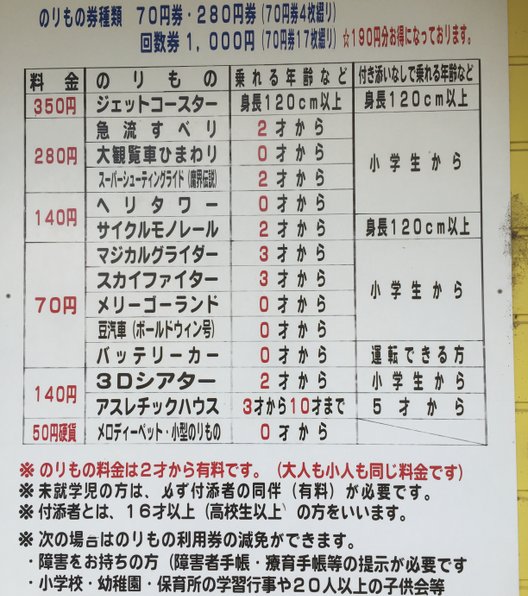 のりもの券種類 70円券・280円券(70円券4枚綴り)
回数券1,000円(70円券17枚綴り) ☆190円分お得になっております。
料金 のりもの 乗れる年齢など 付き添いなしで乗れる年齢など
350円 ジェットコースター 身長120cm以上 身長120cm以上
280円 急流すべり 2才から 小学生から
大観覧車ひまわり 0才から
スーパーシューティングライド(魔界伝説) 2才から
140円 ヘリタワー 0才から
サイクルモノレール 2才から 身長120cm以上
70円 マジカルグライダー 3才から 小学生から
スカイファイター 3才から
メリーゴーランド 0才から
豆汽車(ボールドウィン号) 0才から
バッテリーカー 0才から 運転できる方
140円 3Dシアター 2才から 小学生から
アスレチックハウス 3才から10才まで 5才から
50円硬貨 メロディーペット・小型のりもの 0才から
※ のりもの料金は2才から有料です。(大人も小人も同じ料金です)
※ 未就学児の方は、必ず付添者の同伴(有料)が必要です。
※ 付添者とは、16才以上(高校生以上)の方をいいます。
※ 次の場合はのりもの利用券の減免ができます。
・障害をお持ちの方(障害者手帳・療育手帳等の提示が必要です
・小学校・幼稚園・保育所の学習行事や20人以上の子供会等